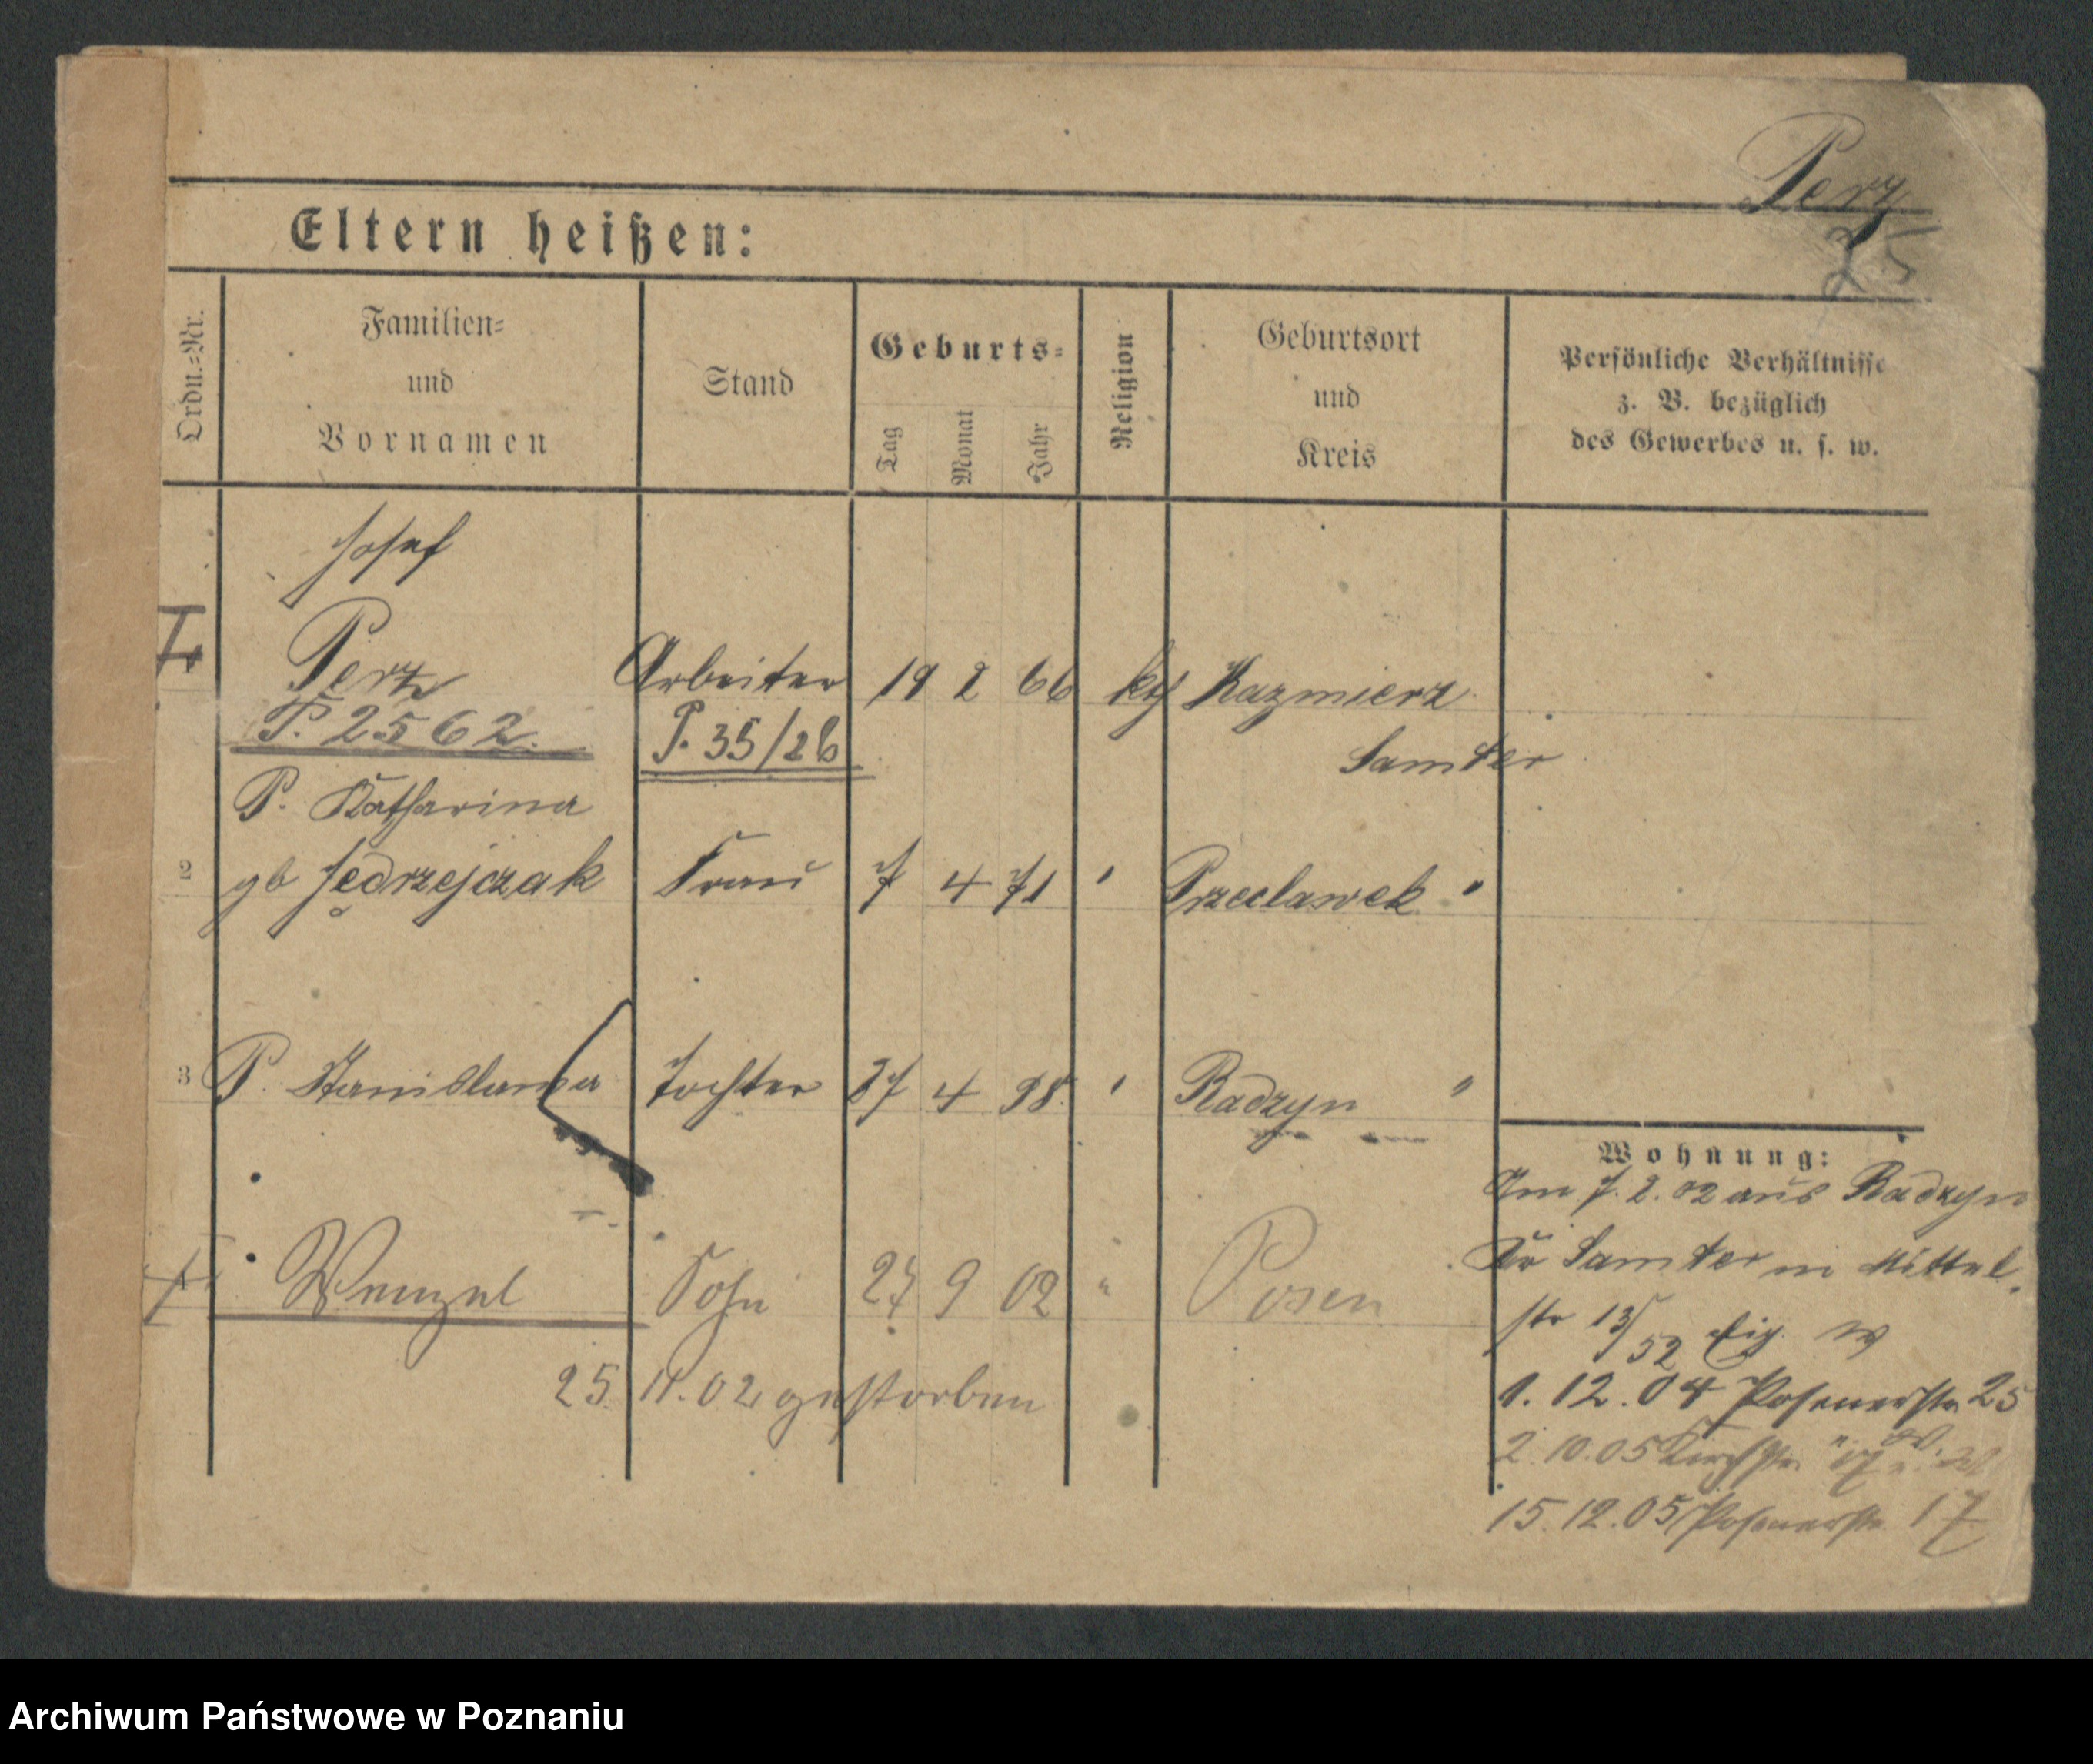 Perz
25
Eltern heißen:
Ordn.=Nr.
Familien=
und
Vornamen
Stand
Geburts=
Tag
Monat
Jahr
Religion
Geburtsort
und
Kreis
Persönliche Verhältnisse
z. B. bezüglich
des Gewerbes u. s. w.
Josef
Perz Arbeiter 19 2 66 kth Kazmierz
P. 2562. P. 35/26 Samter
P. Katharina
2 gb Jędrzejczak Frau 7 4 71 " Przeclawek "
3 P. Stanislawa Tochter 27 4 98 " Radzyn "
Wohnung:
Am 7. 2. 02 aus Radzyn
Kr Samter in Mittel
str 13/52 Eig. W
Wenzel Sohn 27 9 02 " Posen
25. 11. 02 gestorben
1. 12. 04 Posenerstr 25
2. 10. 05 Kirchstr.
15. 12. 05 Posenerstr 17
Archiwum Państwowe w Poznaniu